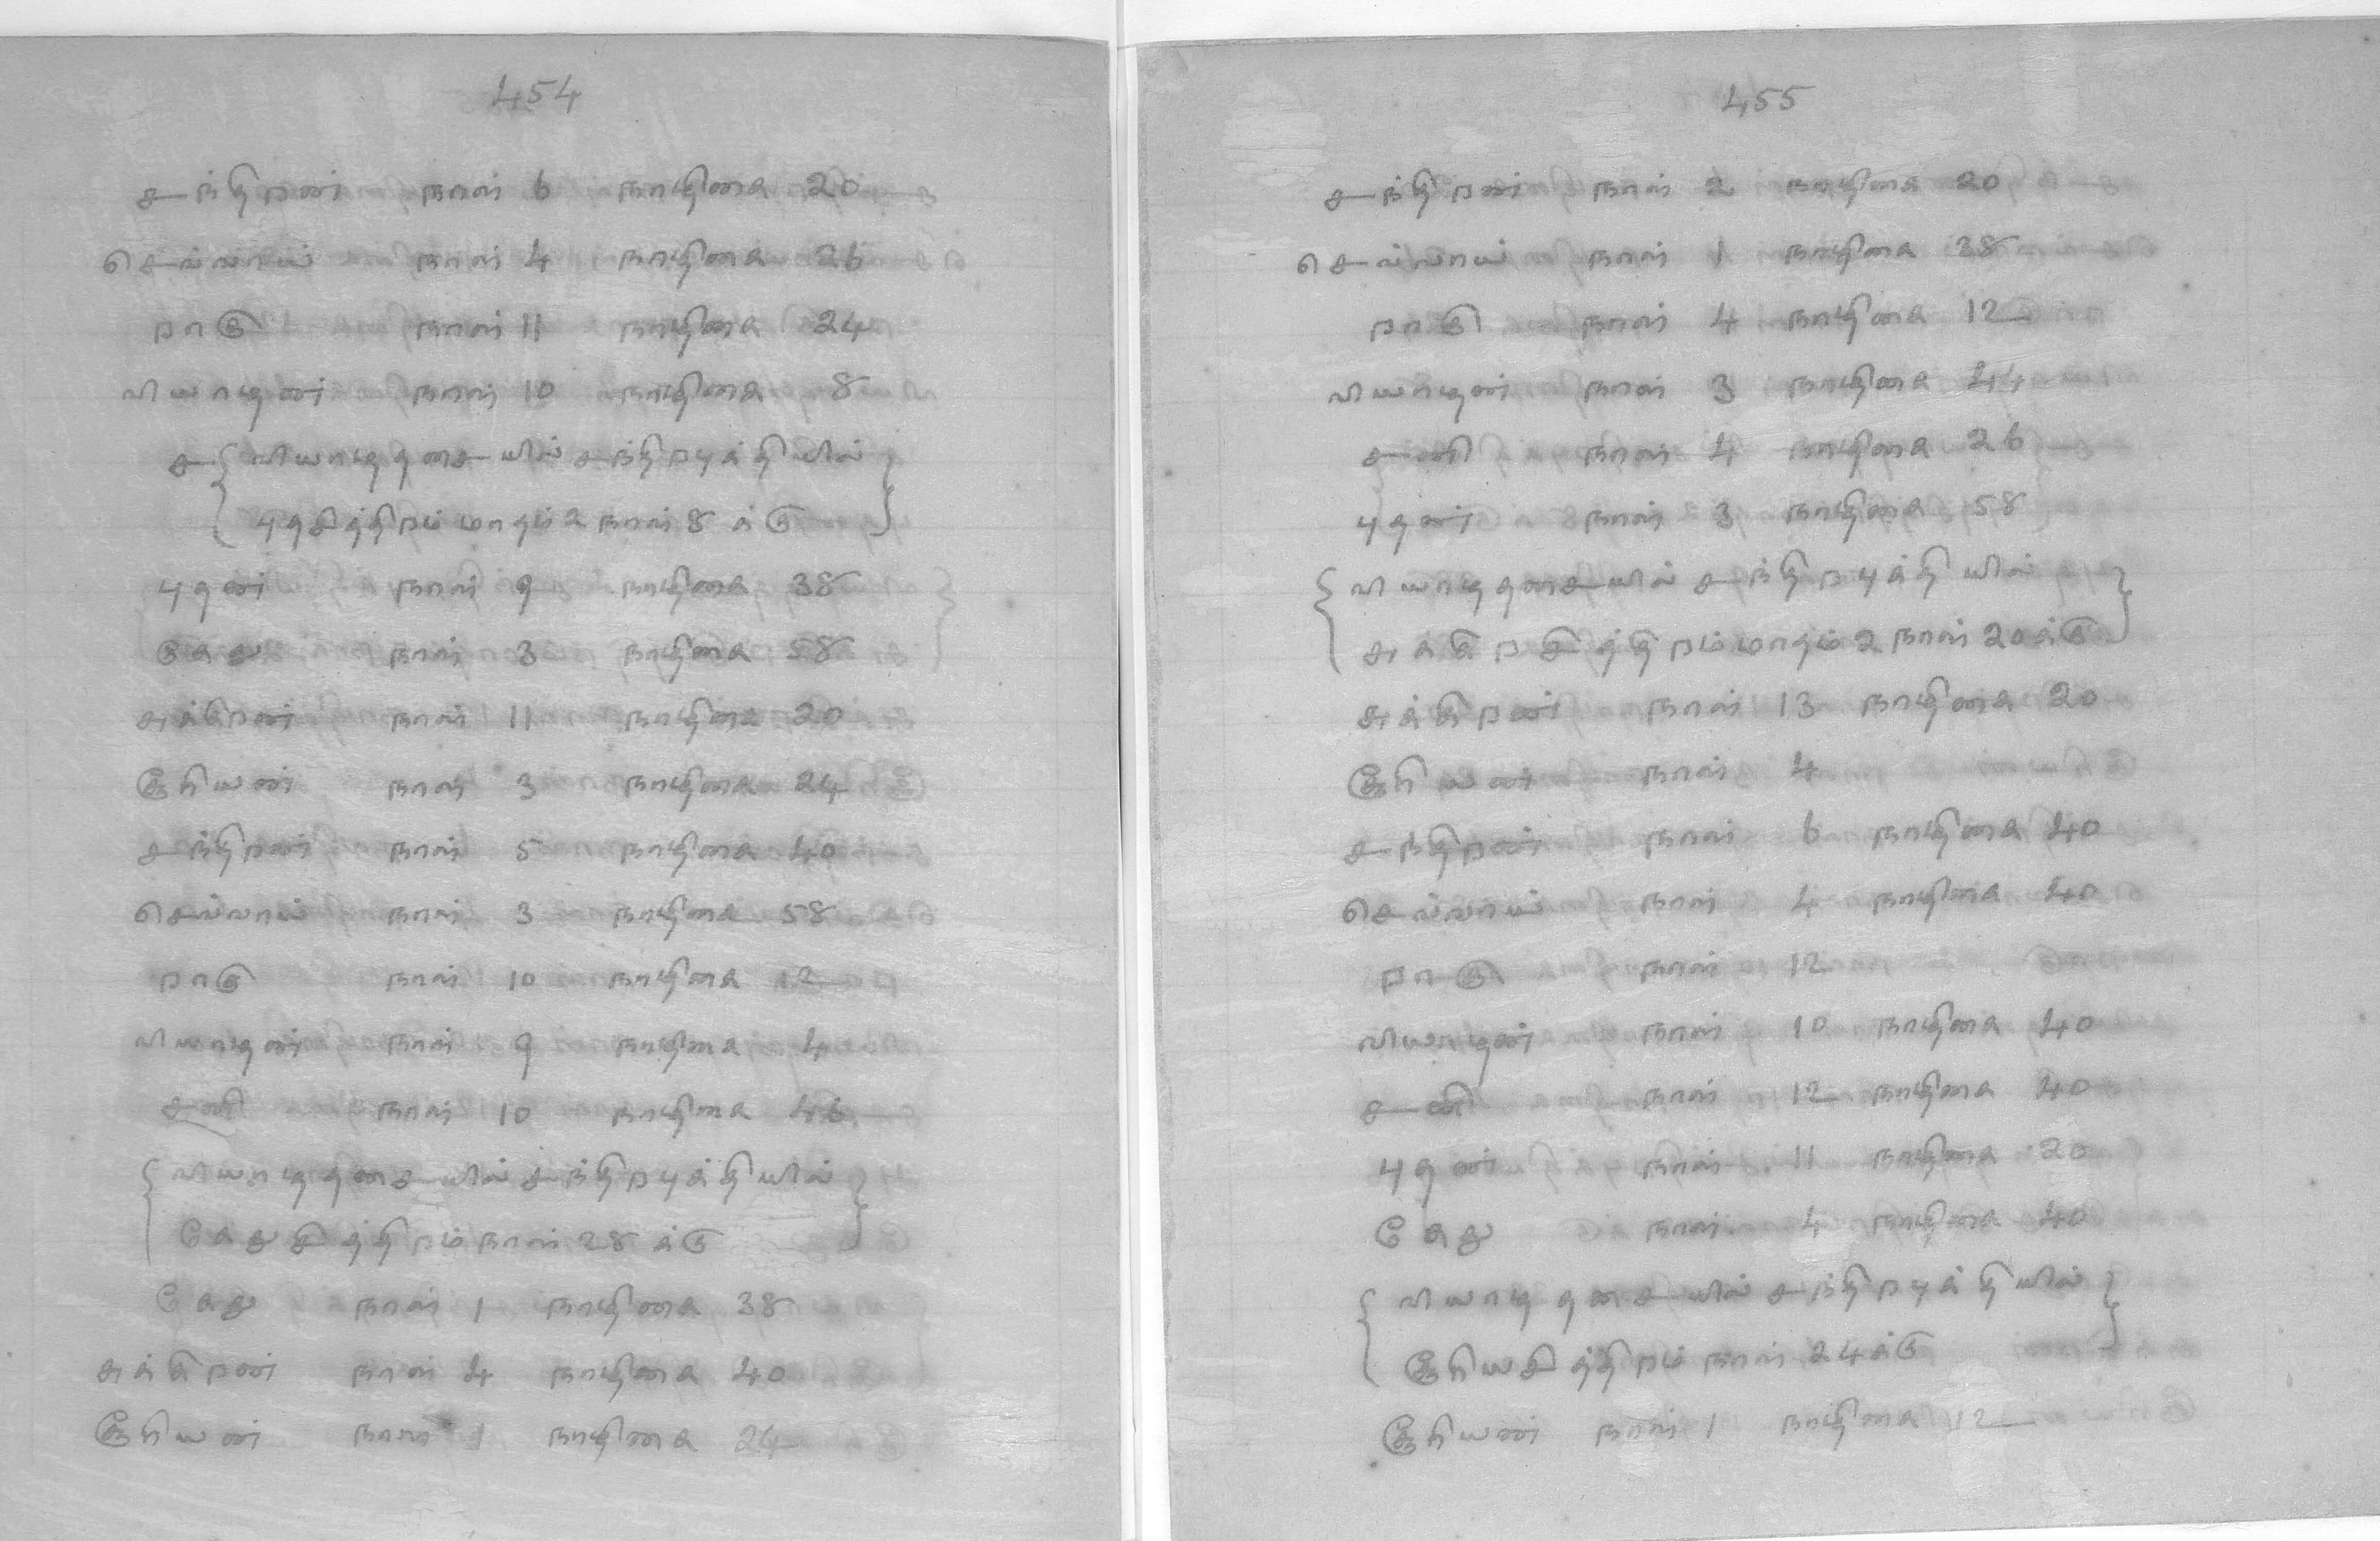 454
சந்திறன் நாள் 6 நாழிகை 20
செவ்வாய் நாள் 4 நாழிகை 26
றாகு நாள் 11 நாழிகை 24
வியாழன் நாள் 10 நாழிகை 8
ச { வியாழதசையில் சந்திறபுக்தியில் }
{ புதசித்திறம் மாதம் 2 நாள் 8 க்கு }
புதன் நாள் 9 நாழிகை 38
கேது நாள் 3 நாழிகை 58
சுக்கிறன் நாள் 11 நாழிகை 20
சூரியன் நாள் 3 நாழிகை 24
சந்திறன் நாள் 5 நாழிகை 40
செவ்வாய் நாள் 3 நாழிகை 58
றாகு நாள் 10 நாழிகை 12
வியாழன் நாள் 9 நாழிகை 4
சனி நாள் 10 நாழிகை 46
{ வியாழதசையில் சந்திறபுக்தியில் }
கேதுசித்திறம் நாள் 28 க்கு
கேது நாள் 1 நாழிகை 38
சுக்கிறன் நாள் 4 நாழிகை 40
சூரியன் நாள் 1 நாழிகை 24
455
சந்திறன் நாள் 2 நாழிகை 20
செவ்வாய் நாள் 1 நாழிகை 38
றாகு நாள் 4 நாழிகை 12
வியாழன் நாள் 3 நாழிகை 44
சனி நாள் 4 நாழிகை 26
புதன் நாள் 3 நாழிகை 58
{ வியாழதசையில் சந்திறபுக்தியில் }
சுக்கிறசித்திறம் மாதம் 2 நாள் 20க்கு
சுக்கிறன் நாள் 13 நாழிகை 20
சூரியன் நாள் 4
சந்திறன் நாள் 6 நாழிகை 40
செவ்வாய் நாள் 4 நாழிகை 40
றாகு நாள் 12
வியாழன் நாள் 10 நாழிகை 40
சனி நாள் 12 நாழிகை 40
புதன் நாள் 11 நாழிகை 20
கேது நாள் 4 நாழிகை 40
{ வியாழதசையில் சந்திறபுக்தியில் }
சூரியசித்திறம் நாள் 24க்கு
சூரியன் நாள் 1 நாழிகை 12